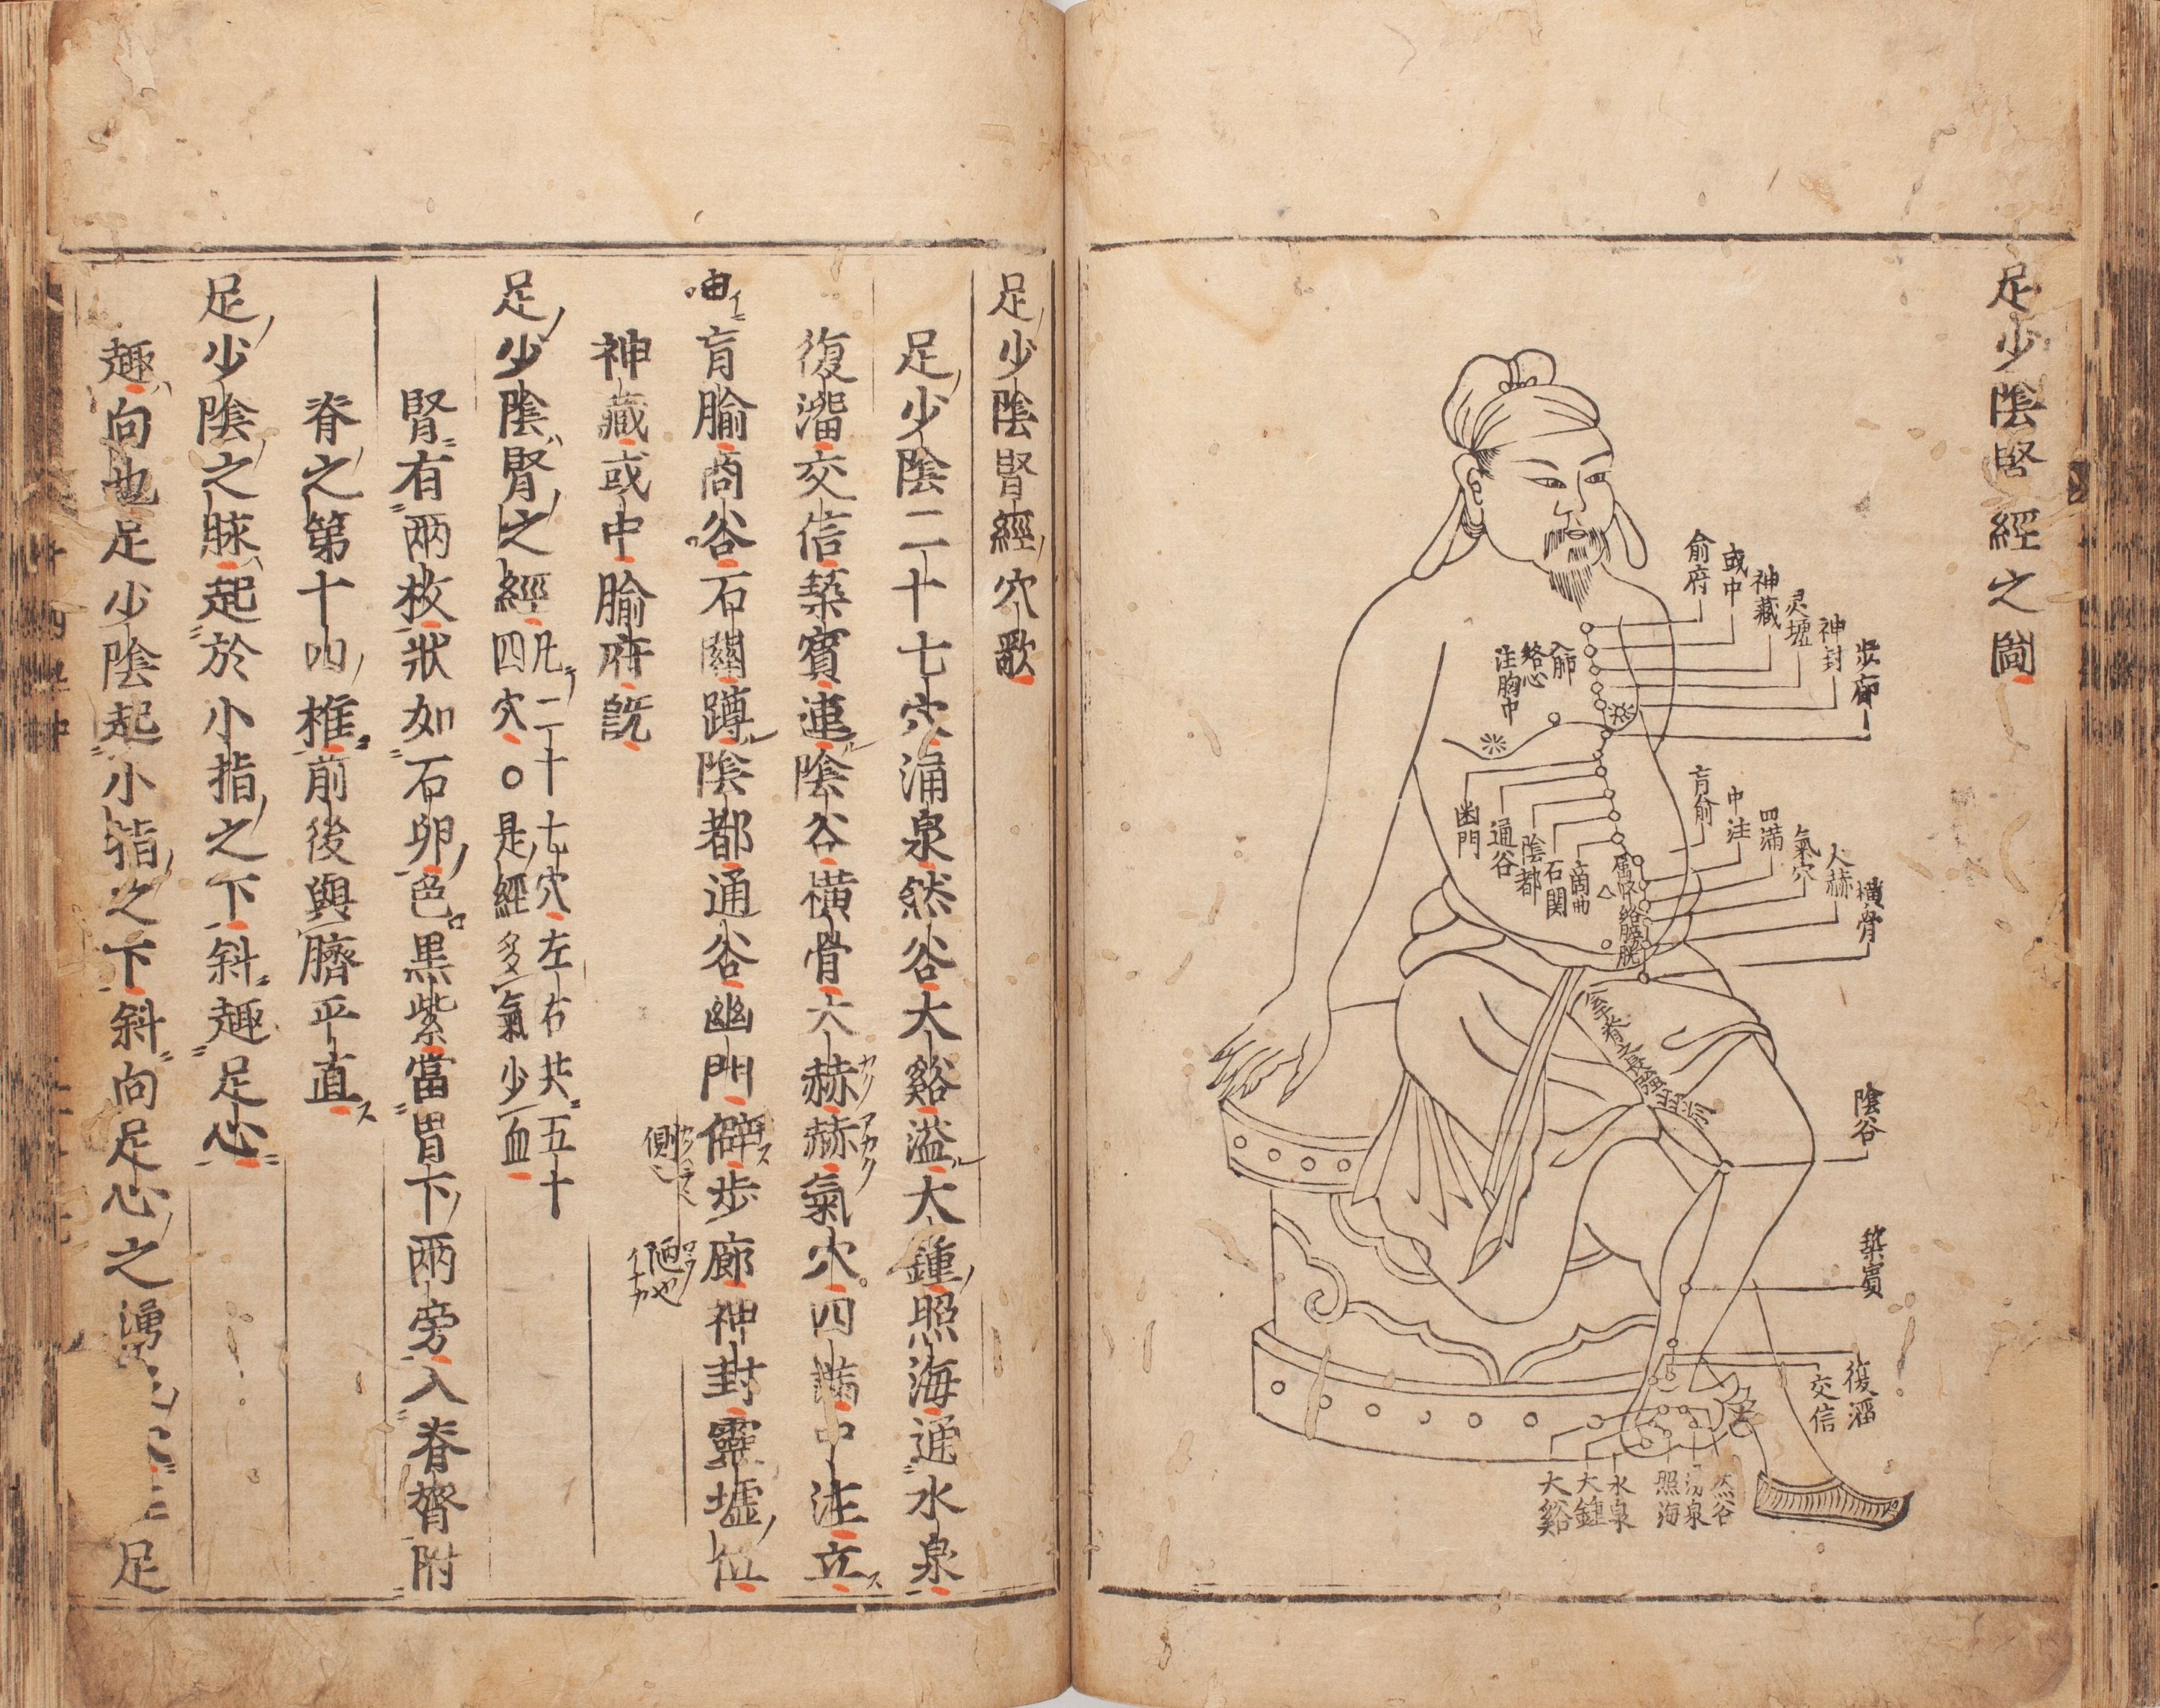 足少陰腎經之圖
俞府
或中
神藏
灵墟
神封
步廊
入肺
絡心
注胸中
幽門
通谷
陰都
石関
商曲
肓俞
中注
四滿
氣穴
大赫
橫骨
屬腎
絡膀胱
陰谷
築賓
復溜
交信
然谷
湧泉
照海
水泉
大鍾
大谿
足少陰腎經穴歌
足少陰二十七穴涌泉然谷大谿溢大鍾照海通水泉
復溜交信築賓連陰谷橫骨大赫赫氣穴四滿中注立
肓腧商谷石關蹲陰都通谷幽門僻步廊神封靈墟位
神藏或中腧府旣
足少陰腎之經凡二十七穴左右共五十
四穴○是經多氣少血
腎有兩枚狀如石卵色黒紫當胃下兩旁入脊膂附
脊之第十四椎前後與臍平直
足少陰之脉起於小指之下斜趣足心
趣向也足少陰起小指之下斜向足心之湧 足